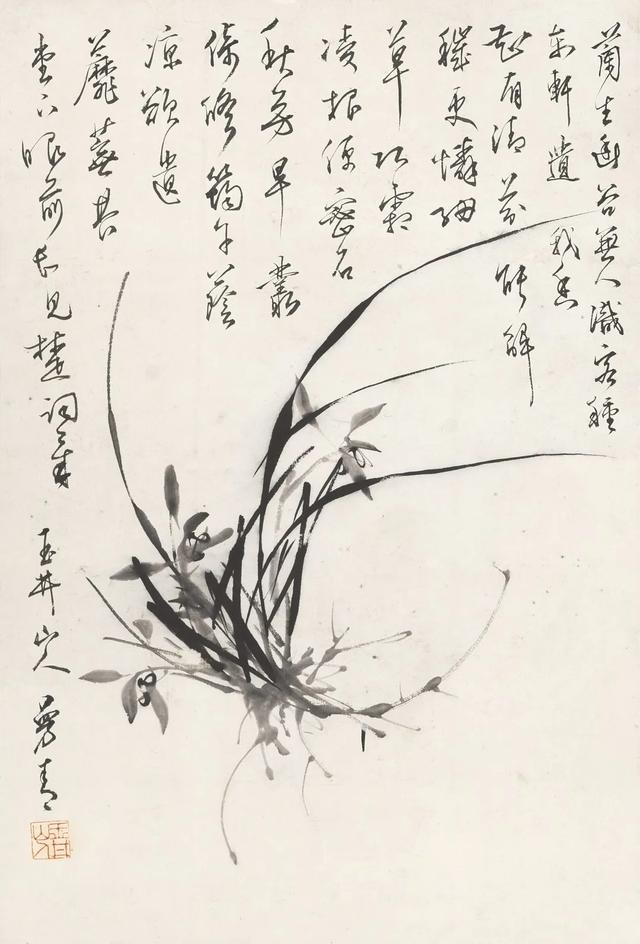 蘭生幽谷無人識客種
東軒遺我香
知有清芬能解
穢更憐細
葉巧霜
凌根便密石
秋芳早叢
倚修筠午蔭
涼欲遣
蘼蕪共
堂下眼前長見楚詞章 玉井山人 曼青